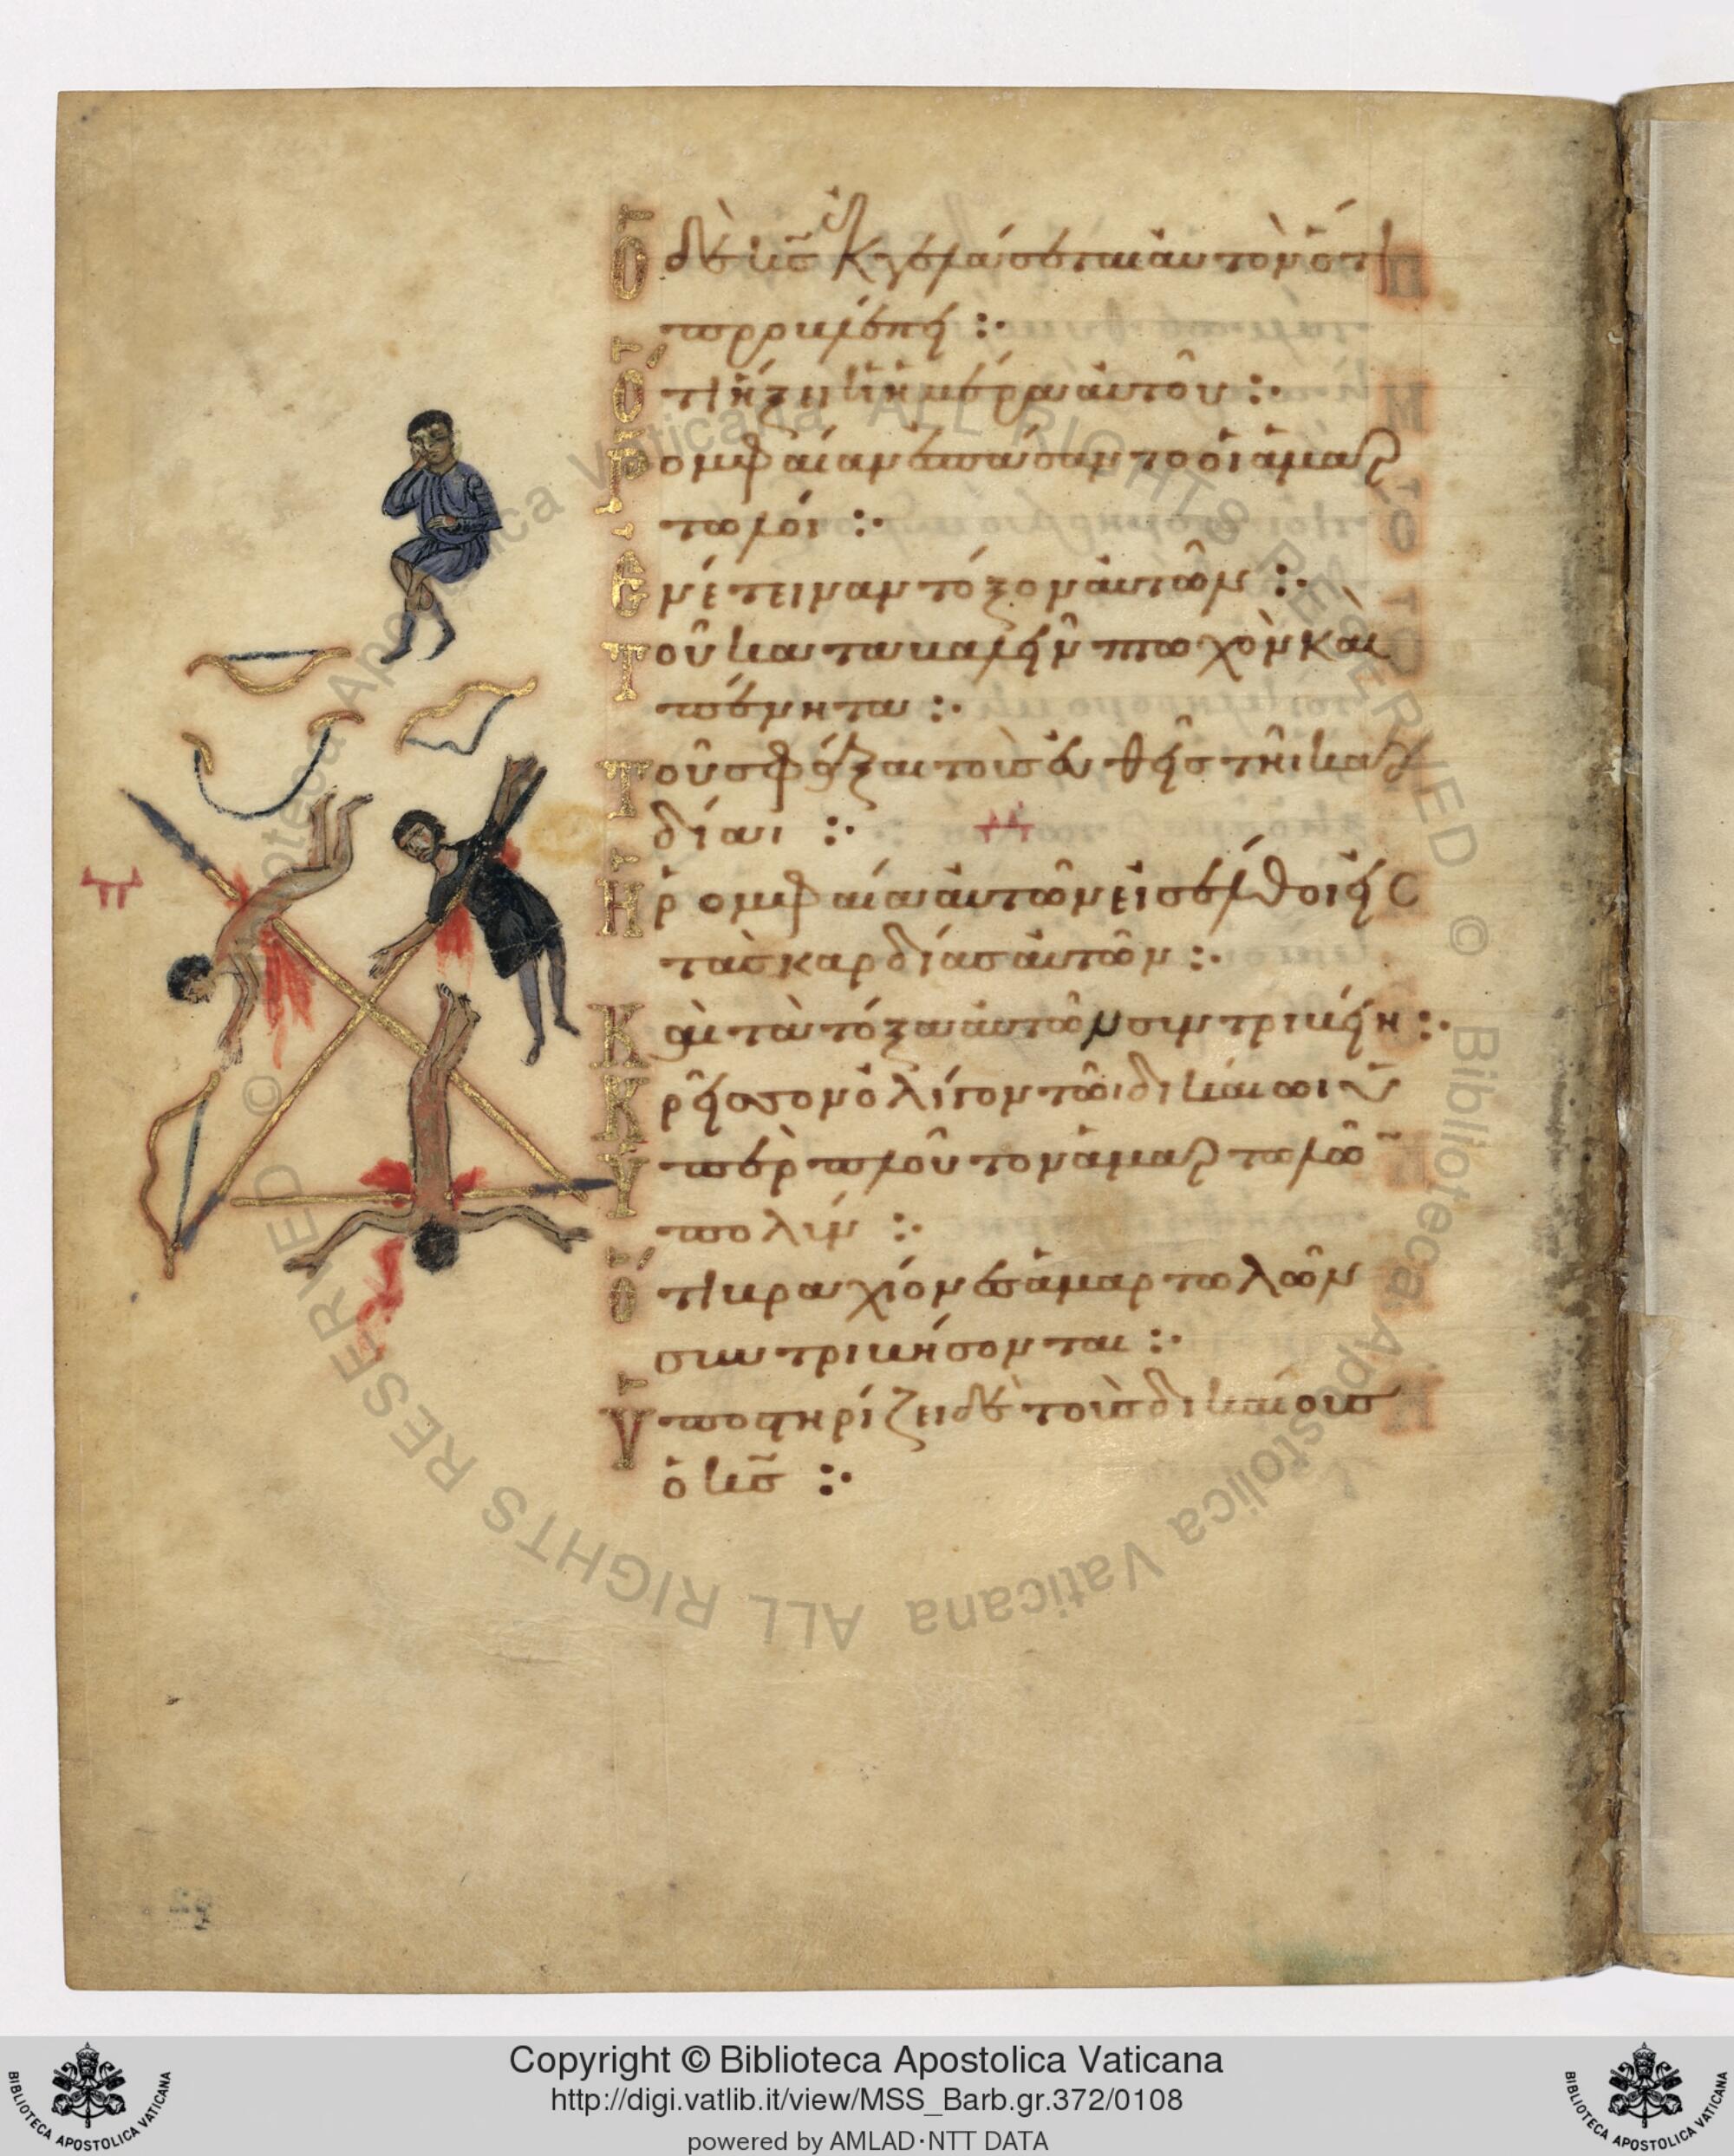 Ὁ δὲ κ̅ς̅ ἐκγελάσεται αὐτὸν ὅτι
προβλέπει :·
ὅτι ἥξει ἡ ἡμέρα αὐτοῦ :·
Ῥομφαίαν ἐσπάσαντο οἱ ἁμαρ
τωλοί :·
Ἐνέτειναν τόξον αὐτῶν :·
Τοῦ καταβαλεῖν πτωχὸν καὶ
πένητα :·
Τοῦ σφάξαι τοὺς εὐθεῖς τῆι καρ
δίαι :·
Ἡ ῥομφαία αὐτῶν εἰσέλθοι εἰς
τὰς καρδίας αὐτῶν :·
Καὶ τὰ τόξα αὐτῶν συντριβείη :·
Κρεῖσσον ὀλίγον τῶι δικαίωι
ὑπὲρ πλοῦτον ἁμαρτωλῶ̅
πολύν :·
ὅτι βραχίονες ἁμαρτωλῶν
συντριβήσονται :·
Ὑποστηρίζει δὲ τοὺς δικαίους
ὁ κ̅ς̅ :·
Copyright © Biblioteca Apostolica Vaticana
http://digi.vatlib.it/view/MSS_Barb.gr.372/0108
powered by AMLAD·NTT DATA
BIBLIOTECA APOSTOLICA VATICANA
BIBLIOTECA APOSTOLICA VATICANA
© Biblioteca Apostolica Vaticana ALL RIGHTS RESERVED © Biblioteca Apostolica Vaticana ALL RIGHTS RESERVED